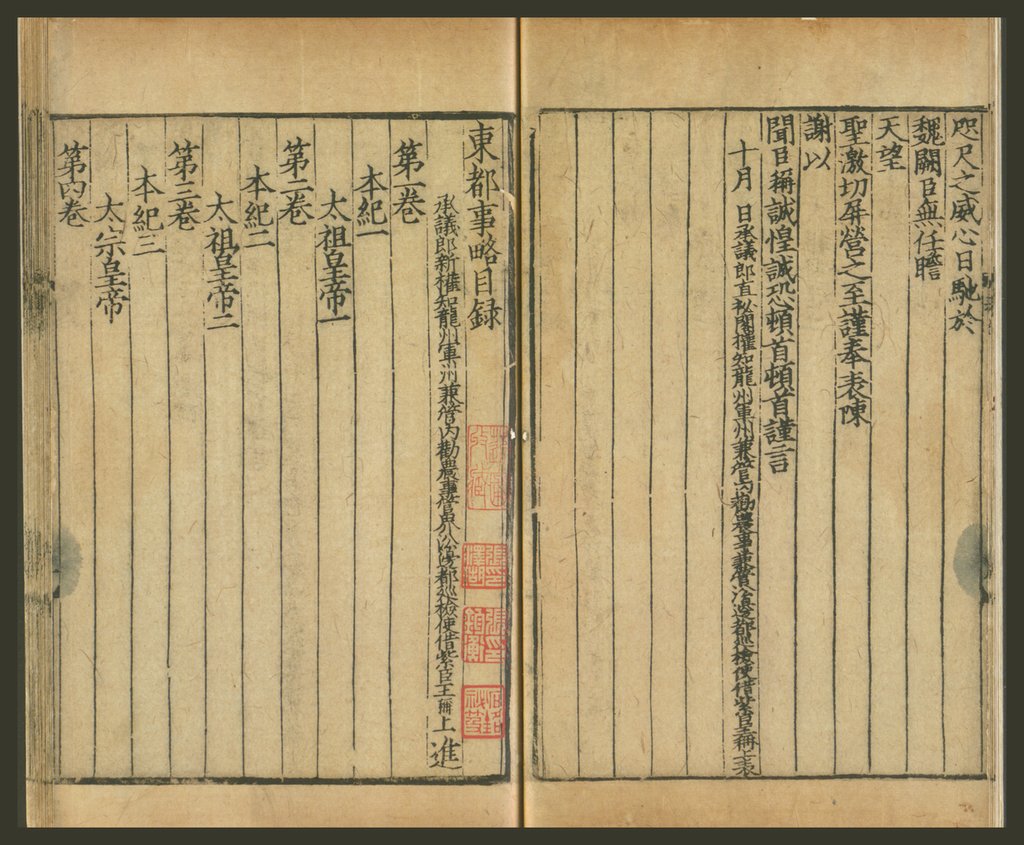 咫尺之威心日馳於
魏闕臣無任瞻
天望
聖激切屏營之至謹奉表陳
謝以
聞臣稱誠惶誠恐頓首頓首謹言
十月 日承議郎直祕閣權知龍州軍州兼管內勸農事兼管沿邊都巡檢使借紫臣王稱上表
東都事略目録
承議郎新權知龍州軍州兼管內勸農事管界沿邊都巡檢使借紫臣王稱上進
第一卷
本紀一
太祖皇帝一
第二卷
本紀二
太祖皇帝二
第三卷
本紀三
太宗皇帝
第四卷